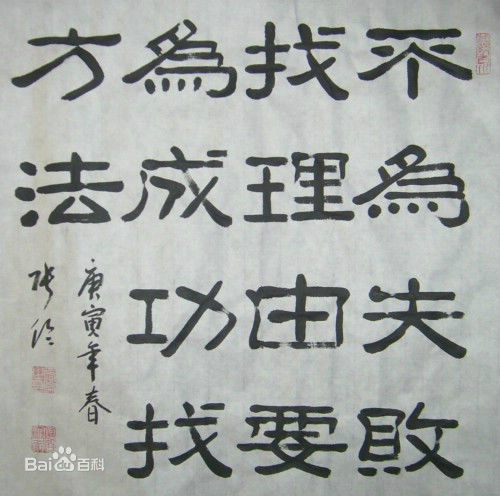 不為失敗
找理由要
為成功找
方法
庚寅年春
Bai度百科